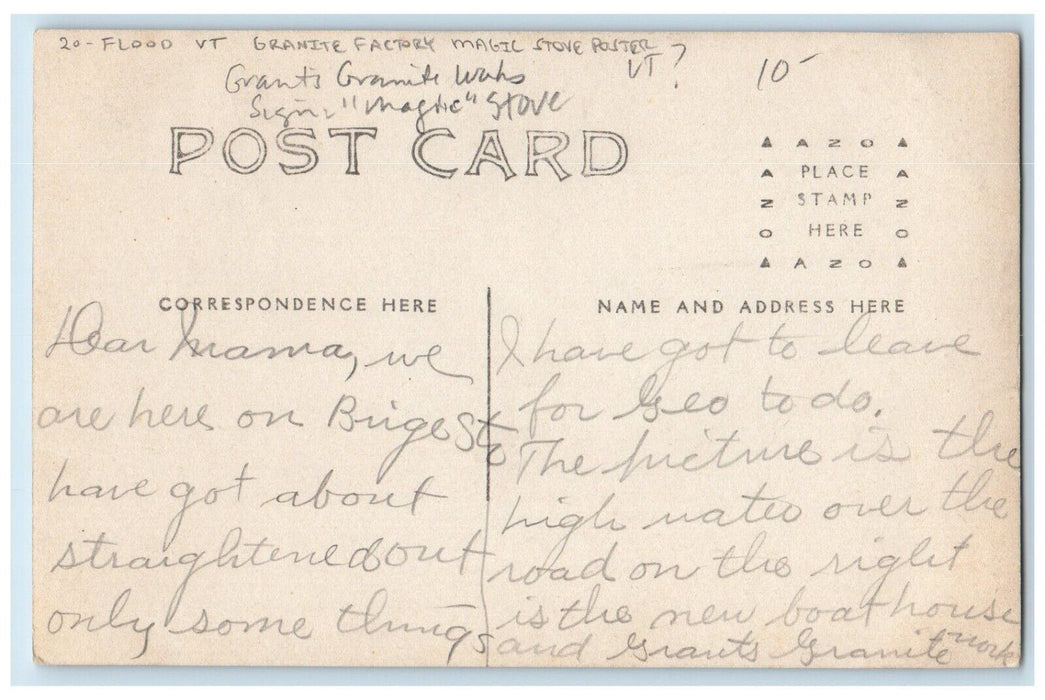 20-FLOOD VT GRANITE FACTORY MAGIC STOVE POSTER
VT?
10-
Grant's Granite Works
Sign, "Magic" Stove
POST CARD
▲ A Z O ▲
A PLACE A
Z STAMP Z
O HERE O
▲ A Z O ▲
CORRESPONDENCE HERE
NAME AND ADDRESS HERE
Dear Mama, we
are here on St
have got about
straightened out
only some things
I have got to leave
for Geo to do.
The picture is the
high water over the
road on the right
is the new boat house
and Grants Granite work